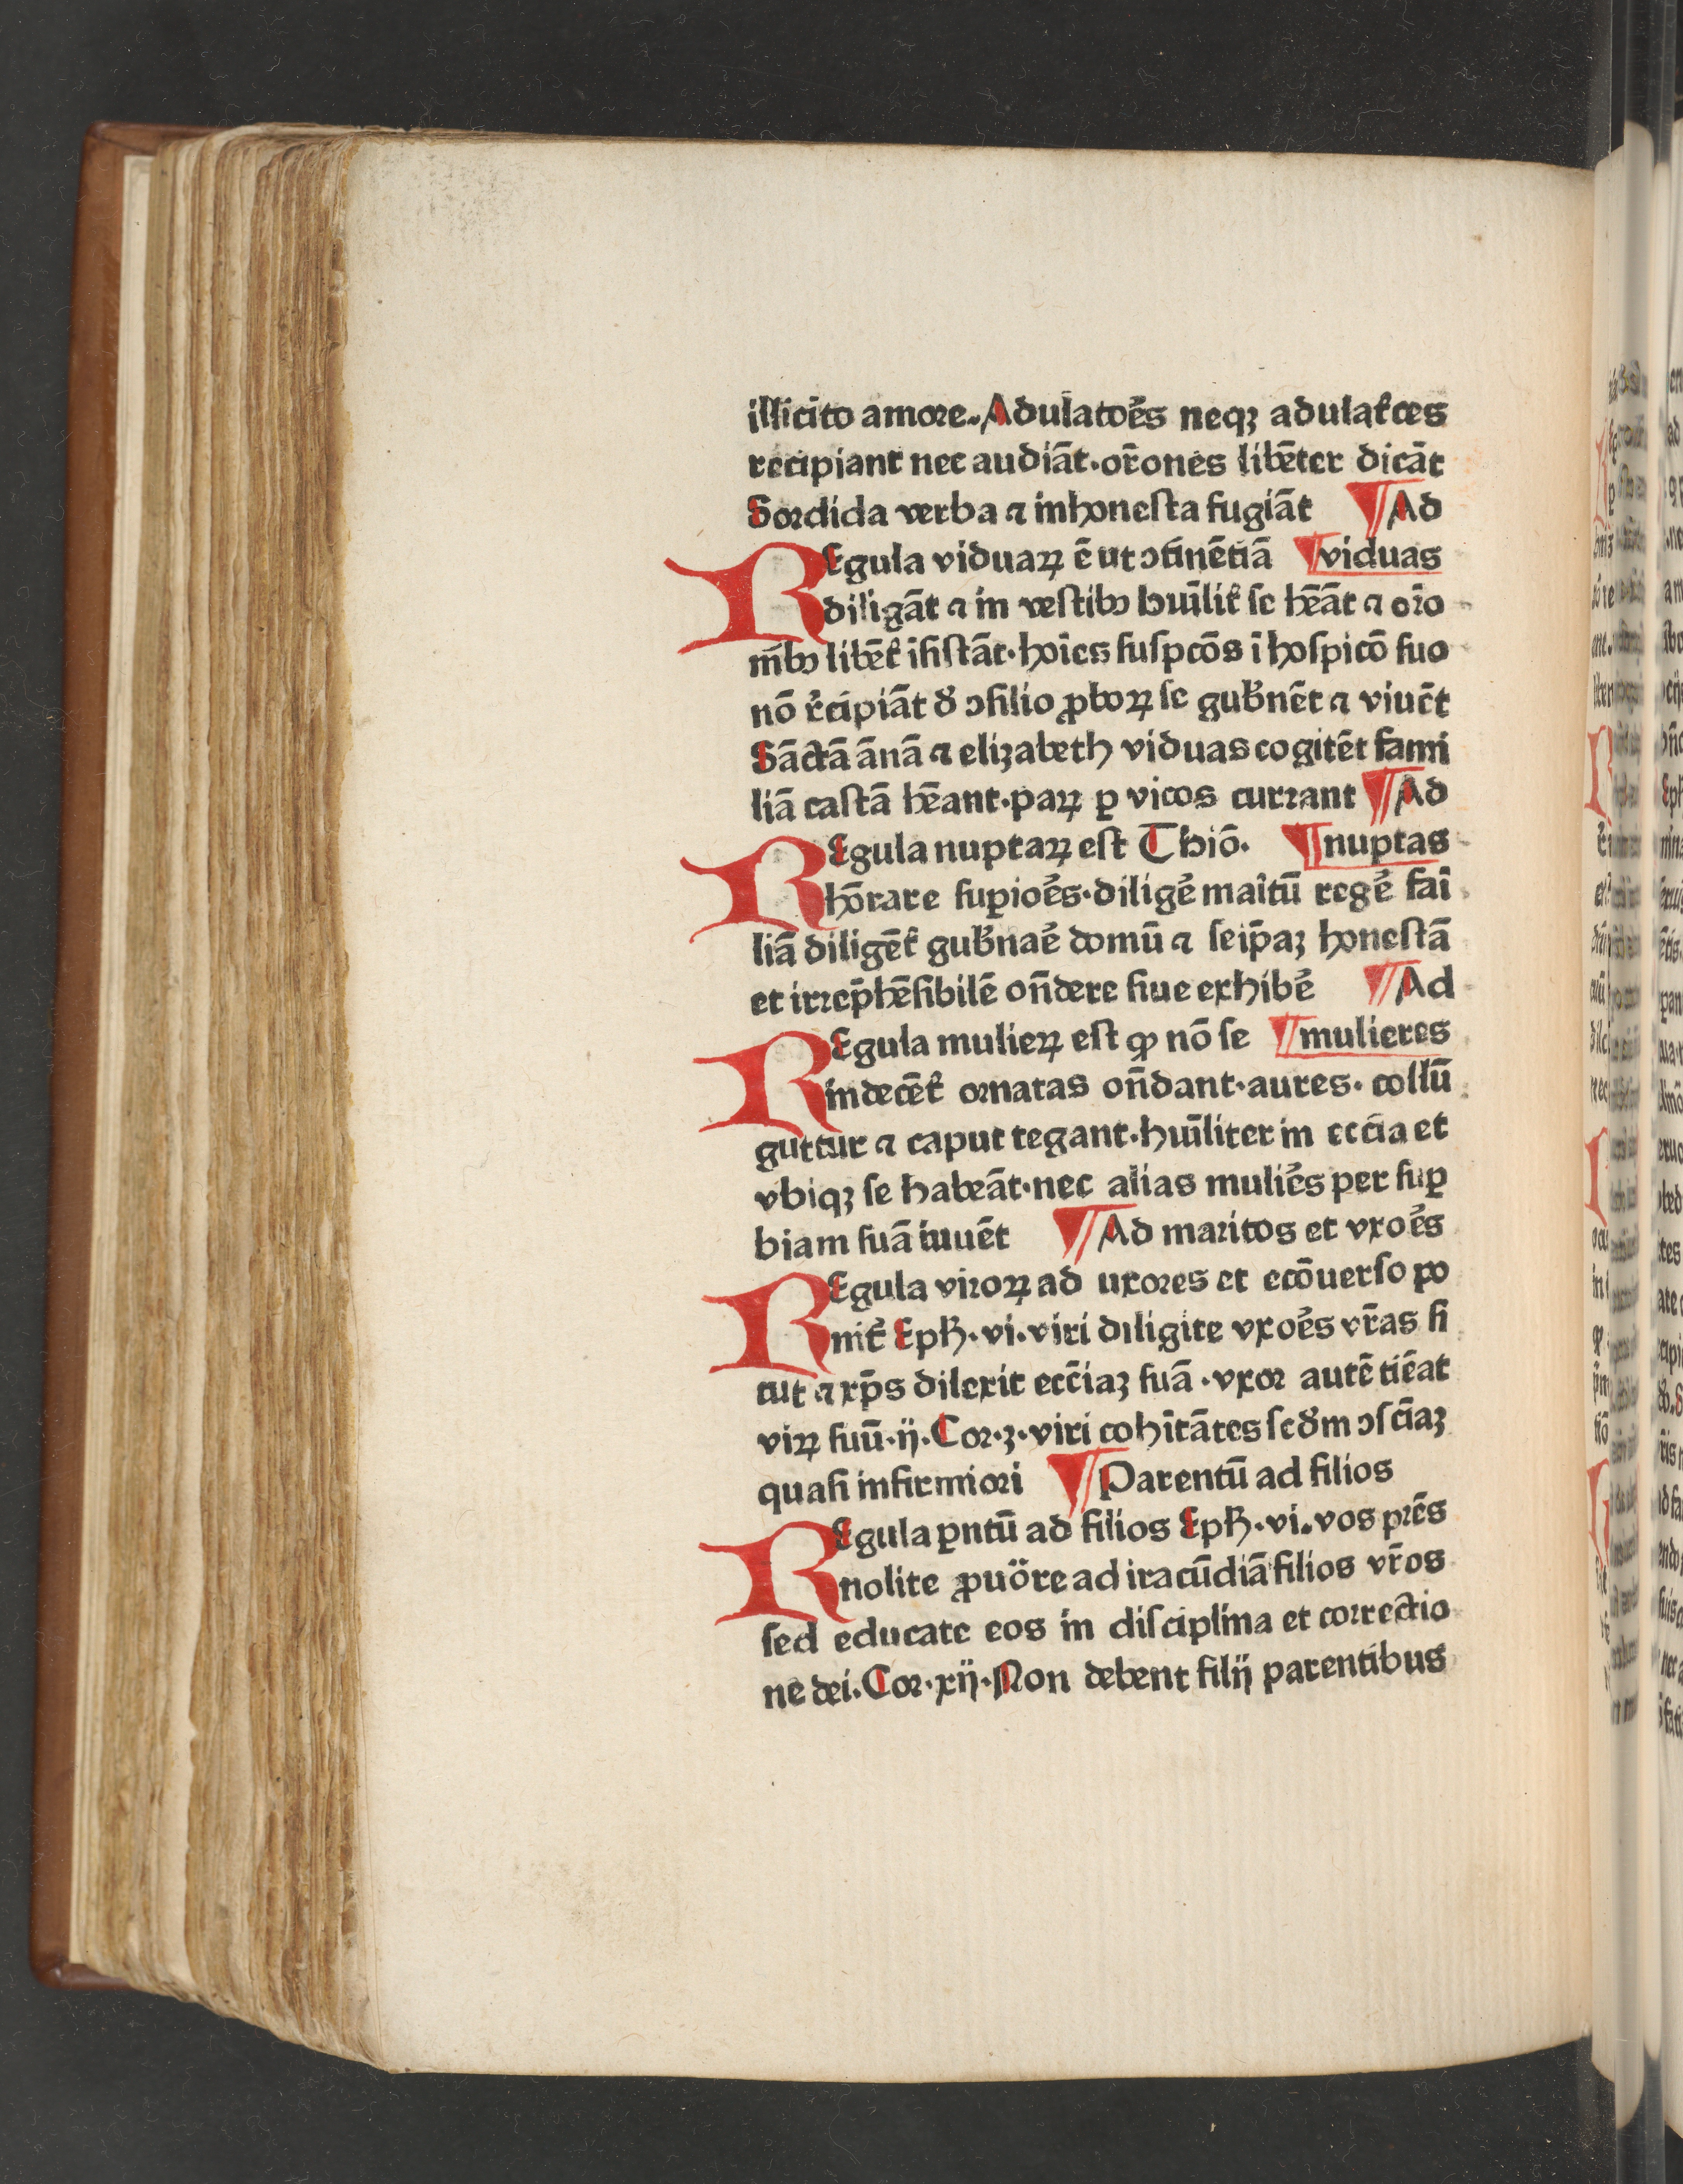 illicito amore. Adulatoēs neqꝫ adulat̄ces
recipiant nec audiāt·or̄ones libēter dicāt
Sordida verba ⁊ inhonesta fugiāt ¶ Ad
REgula viduaꝝ ē ut ↄtinētiā ¶ viduas
diligāt ⁊ in vestibꝯ huīlit̄ se hēāt ⁊ or̄o
nībꝯ libēt̄ īsistāt·hoīes suspcōs ī hospicō suo
nō r̄cipiāt ð ↄsilio ꝓboꝝ se gub̄nēt ⁊ viuēt
Sāctā ānā ⁊ elizabeth viduas cogitēt fami
liā castā hēant·paꝝ ꝑ vicos currant ¶ Ad
REgula nuptaꝝ est Thiō. ¶ nuptas
hōrare suꝑioēs·diligē maītū regē fai
liā diligēt̄ gub̄naē domū ⁊ seip̄aꝫ honestā
et irrep̄hēsibilē on̄dere siue exhibē ¶ Ad
REgula mulieꝝ est ꝙ nō se ¶ mulieres
indecēt̄ ornatas on̄dant·aures· collū
guttur ⁊ caput tegant·huīliter in eccīa et
vbiqꝫ se habeāt·nec alias muliēs per suꝑ
biam suā iuuēt ¶ Ad maritos et vxoēs
REgula viroꝝ ad uxores et ecōuerso po
nit̄ Eph̄·vi·viri diligite vxoēs vr̄as si
cut ⁊ xp̄s dilexit eccīaꝫ suā ·vxor autē tiēat
viꝝ suū·ij·Cor·3·viri cohītātes scðm ↄscīaꝫ
quasi infirmiori ¶ Parentū ad filios
REgula ꝑntū ad filios Eph̄·vi·vos pr̄es
nolite ꝓuōre ad iracūdiā filios vr̄os
sed educate eos in disciplina et correctio
ne dei·Cor·xij·Non debent filij parentibus